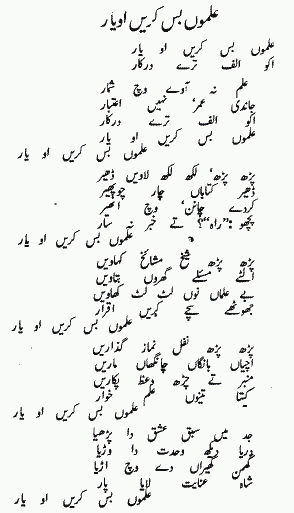 علموں بس کریں او یار
علموں بس کریں او یار
اکو الف ترے درکار
علم نہ آوے وچ شمار
جاندی عمر، نہیں اعتبار
اکو الف ترے درکار
علموں بس کریں او یار
علموں بس کریں او یار
پڑھ پڑھ، لکھ لکھ لاویں ڈھیر
ڈھیر کتاباں چار چوپھیر
کردے چانن، وچ انھیر
پچھو: "راہ"؟ تے خبر نہ سار
علموں بس کریں او یار
پڑھ پڑھ شیخ مشائخ کہاویں
الٹے مسئلے گھروں بتاویں
بے علماں نوں لٹ لٹ کھاویں
جھوٹھے سچے کریں اقرار
علموں بس کریں او یار
پڑھ پڑھ نفل نماز گذاریں
اچیاں بانگاں چانگھاں ماریں
منبر تے چڑھ وعظ پکاریں
کیتا تینوں علم خوار
علموں بس کریں او یار
جد میں سبق عشق دا پڑھیا
دریا دیکھ وحدت دا وڑیا
گھمن گھیراں دے وچ اڑیا
شاہ عنایت لایا پار
علموں بس کریں او یار